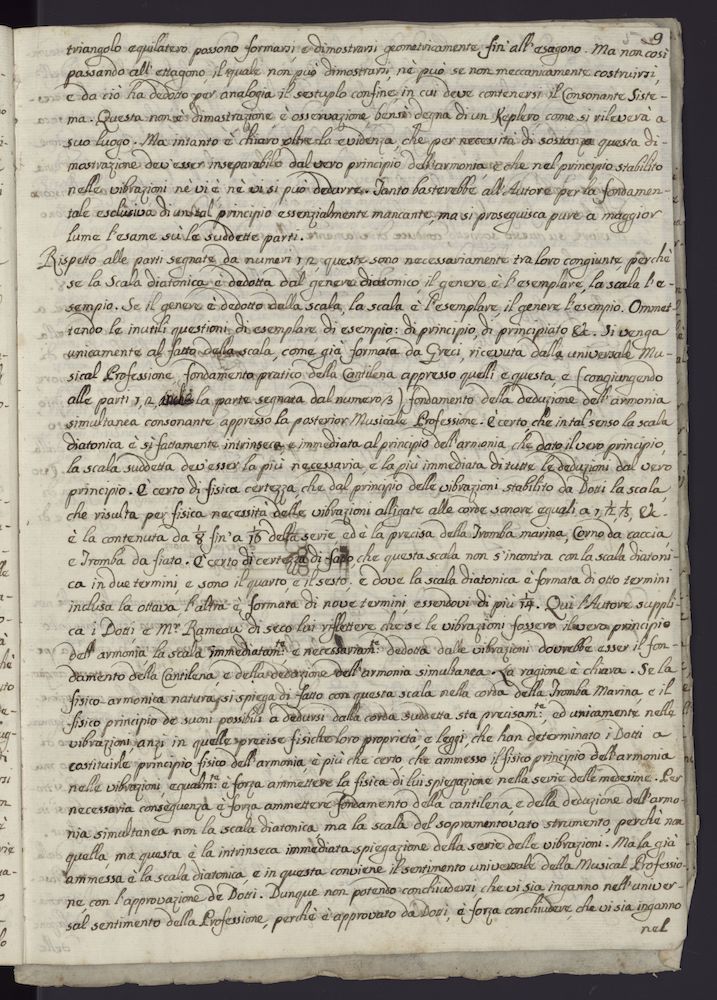 9
triangolo equilatero possono formarsi, e dimostrarsi geometricamente fin' all' esagono. Ma non così
passando all' ettagono il quale non può dimostrarsi, nè può se non meccanicamente costruirsi,
e da ciò ha dedotto per analogia il sestuplo confine, in cui deve contenersi il Consonante Siste-
ma. Questa non è dimostrazione, è osservazione bensì degna di un Keplero, come si rileverà a
suo luogo. Ma intanto è chiaro oltre la evidenza, che per necessità di sostanza questa di-
mostrazione dev' esser inseparabile dal vero principio dell' armonia, e che nel principio stabilito
nelle vibrazioni nè vi è nè vi si può dedurre. Tanto basterebbe all' Autore per la fondamen-
tale esclusiva di un tal principio essenzialmente mancante, ma si proseguisca pure a maggior
lume l' esame sù le suddette parti.
Rispetto alle parti segnate da numeri 1, 2, queste sono necessariamente tra loro congiunte perchè
se la Scala diatonica è dedotta dal genere diatonico il genere è l' esemplare, la scala l' e-
sempio. Se il genere è dedotto dalla scala, la scala è l' esemplare, il genere l' esempio. Ommet-
tendo le inutili questioni di esemplare di esempio: di principio, di principiato &c. Si venga
unicamente al fatto della scala, come già formata da Greci, ricevuta dalla universale Mu-
sical Professione fondamento pratico della Cantilena appresso quelli e questa, e (congiungendo
alle parti 1, 2 la parte segnata dal numero 3) fondamento della deduzione dell' armonia
simultanea consonante appresso la posterior Musicale Professione. È certo che in tal senso la scala
diatonica è sì fattamente intrinseca, e immediata al principio dell' armonia che dato il vero principio,
la scala suddetta dev' esser la più necessaria, e la più immediata di tutte le deduzioni dal vero
principio. È certo di fisica certezza che dal principio delle vibrazioni stabilito da Dotti la scala,
che risulta per fisica necessità delle vibrazioni alligate alle corde sonore eguali a 1, 1/2, 1/3, &c.
è la contenuta da 1/8 fin' a 1/16 della serie ed è la precisa della Tromba marina, Corno da caccia,
e Tromba da fiato. È certo di certezza di fatto che questa scala non s' incontra con la scala diatoni-
ca in due termini, e sono il quarto, e il sesto. e dove la scala diatonica è formata di otto termini
inclusa la ottava, l' altra è formata di nove termini essendovi di più 1/14. Qui l' Autore suppli-
ca i Dotti e Mr. Rameau di seco lui riflettere che se le vibrazioni fossero il vero principio
dell' armonia la scala immediatamte. e necessariamte. dedotta dalle vibrazioni dovrebbe esser il fon-
damento della Cantilena, e della deduzione dell' armonia simultanea. La ragione è chiara. Se la
fisico-armonica natura si spiega di fatto con questa scala nella corda della Tromba Marina, e il
fisico principio de suoni possibili a dedursi dalla corda suddetta sta precisamte. ed unicamente nelle
vibrazioni anzi in quelle precise fisiche loro proprietà, e leggi, che han determinato i Dotti a
costituirle principio fisico dell' armonia, è più che certo, che ammesso il fisico principio dell' armonia
nelle vibrazioni, equalmte. è forza ammettere la fisica di lui spiegazione nella serie delle medesime. Per
necessaria conseguenza è forza ammettere fondamento della cantilena, e della deduzione dell' armo-
nia simultanea non la scala diatonica ma la scala del sopramentovato strumento, perchè non
quella, ma questa è la intrinseca immediata spiegazione della serie delle vibrazioni. Ma la già
ammessa è la scala diatonica, e in questa conviene il sentimento universale della Musical Professio-
ne con l' approvazione de Dotti. Dunque non potendo conchiudersi che vi sia inganno nell' univer-
sal sentimento della Professione, perchè è approvato da Dotti, è forza conchiudere, che vi sia inganno
nel